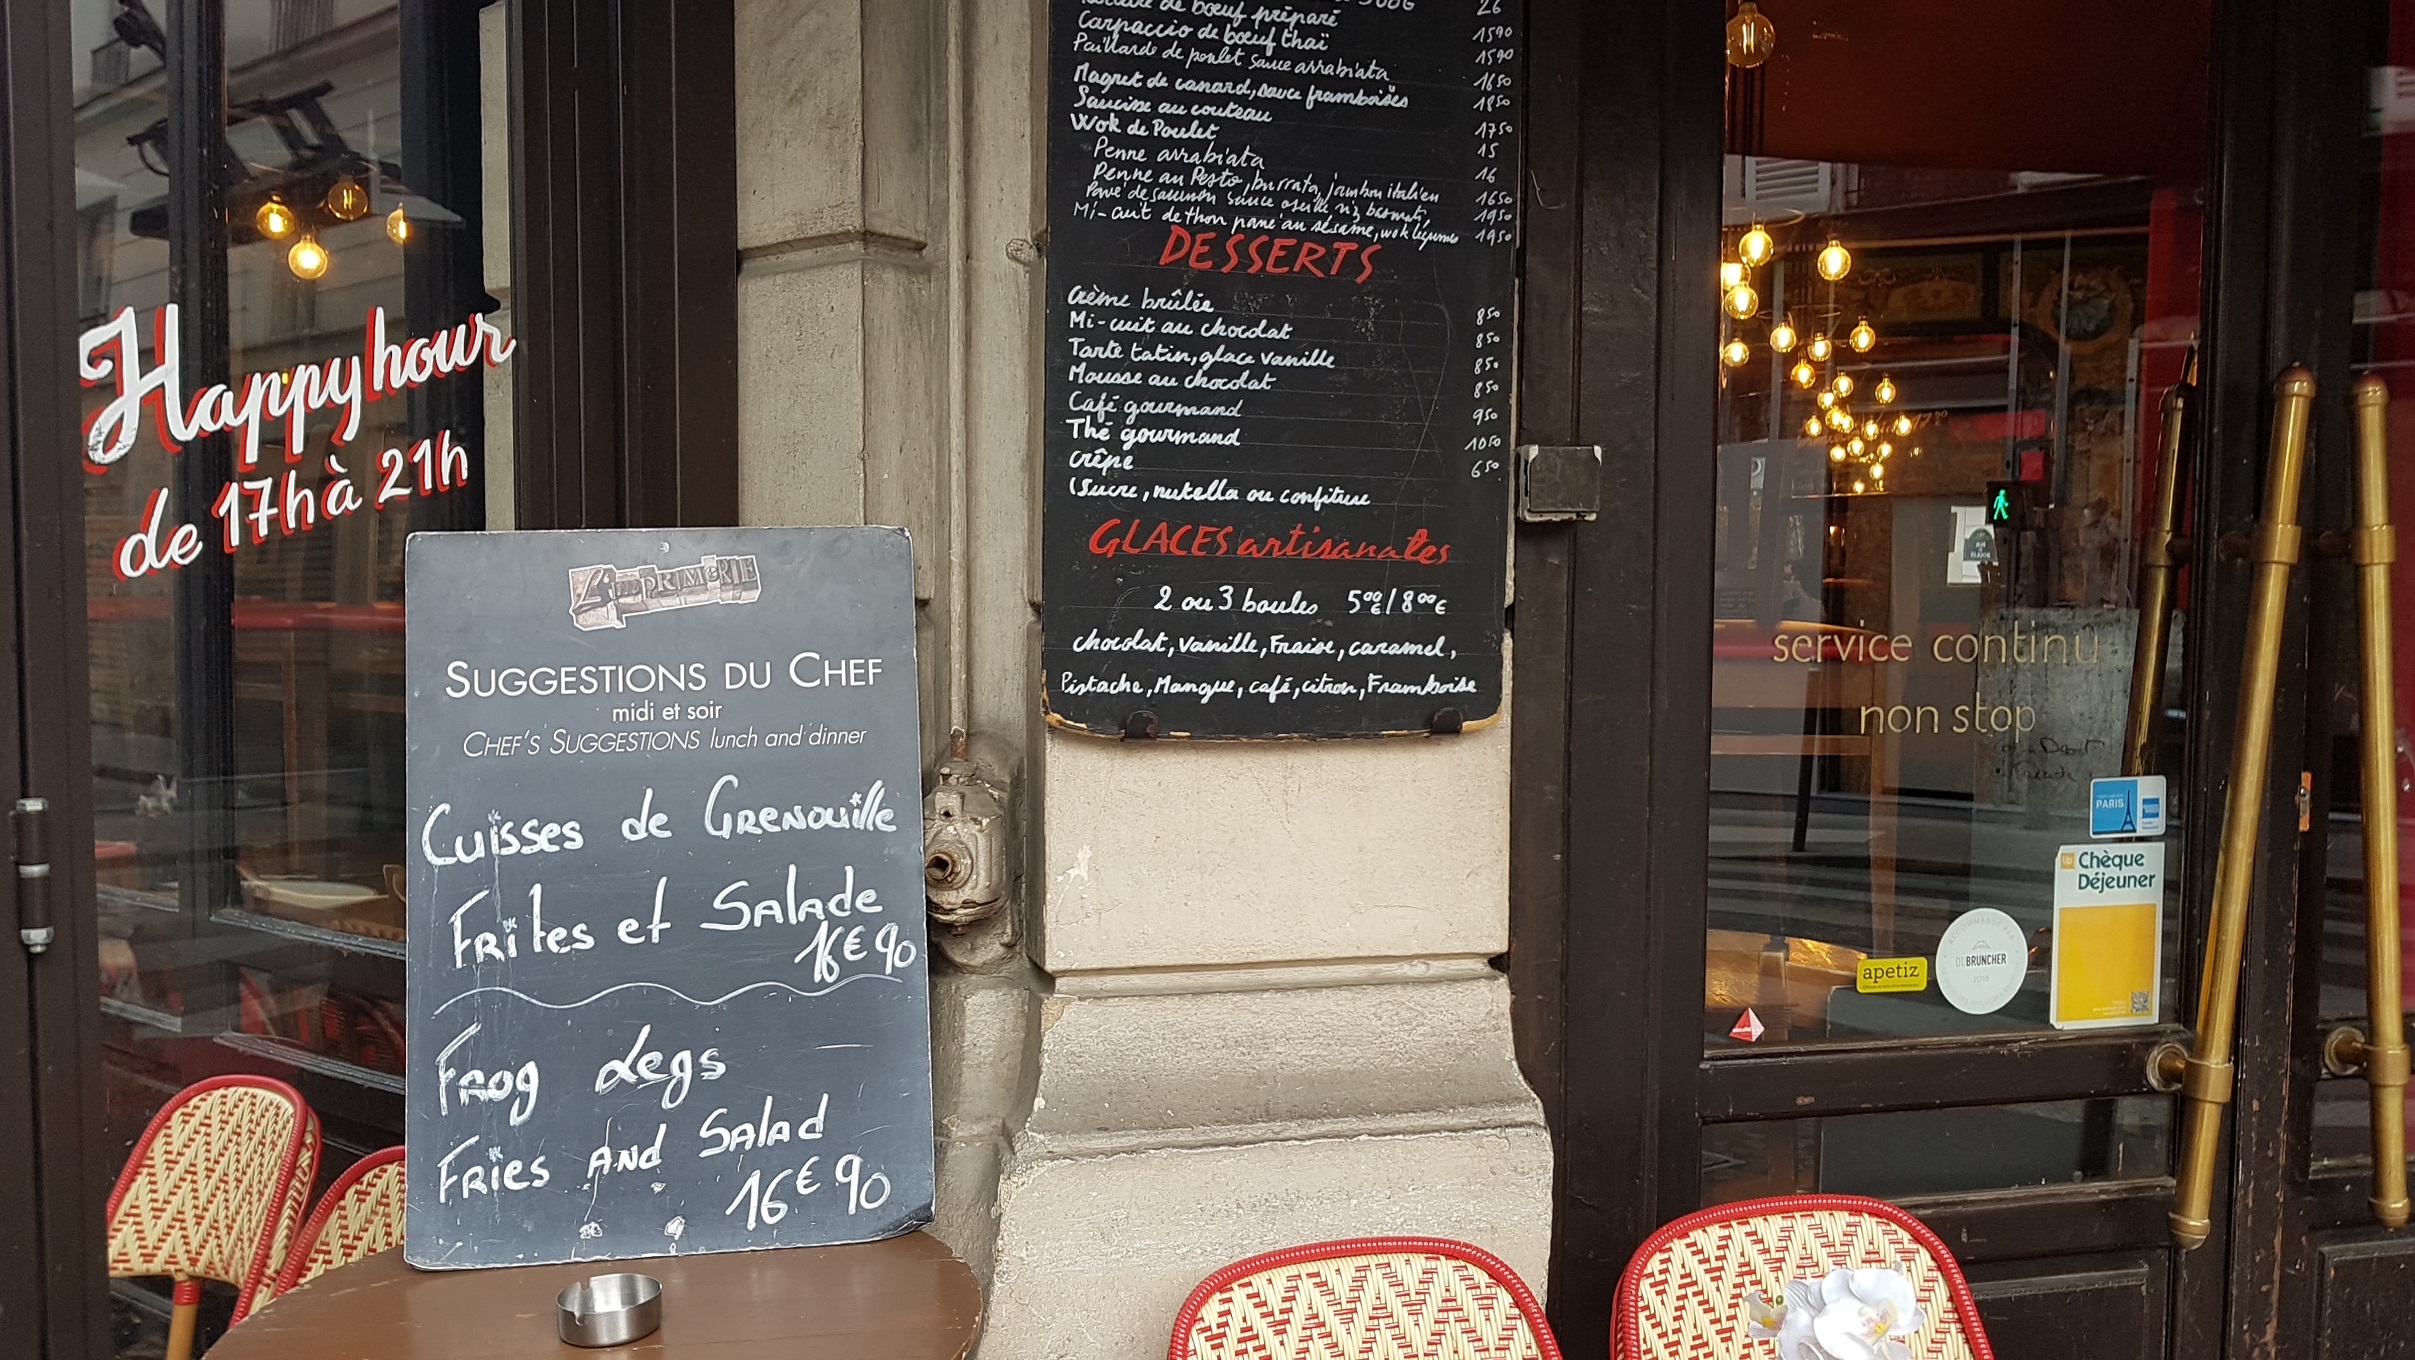 Happy hour
de 17h à 21h
L'IMPRIMERIE
SUGGESTIONS DU CHEF
midi et soir
CHEF'S SUGGESTIONS lunch and dinner
Cuisses de Grenouille
Frites et Salade
16€90
Frog Legs
Fries and Salad
16€90
de bœuf préparé 26
Carpaccio de bœuf thaï 1590
Paillarde de poulet sauce arrabiata 1590
Magret de canard, sauce framboises 1650
Saucisse au couteau 1850
Wok de Poulet 1750
Penne arrabiata 15
Penne au Pesto, burrata, jambon italien 16
Pavé de saumon sauce oseille riz basmati, 1650
Mi-cuit de thon pané au sésame, wok légumes 1950
1950
DESSERTS
Crème brûlée 850
Mi-cuit au chocolat 850
Tarte tatin, glace vanille 850
Mousse au chocolat 850
Café gourmand 950
Thé gourmand 1050
crêpe 650
(Sucre, nutella ou confiture
GLACES artisanales
2 ou 3 boules 500€/800€
chocolat, vanille, Fraise, caramel,
Pistache, Mangue, café, citron, Framboise
service continu
non stop
PARIS
Up Chèque
Déjeuner
apetiz
RECOMMANDÉ PAR
OUBRUNCHER
2018